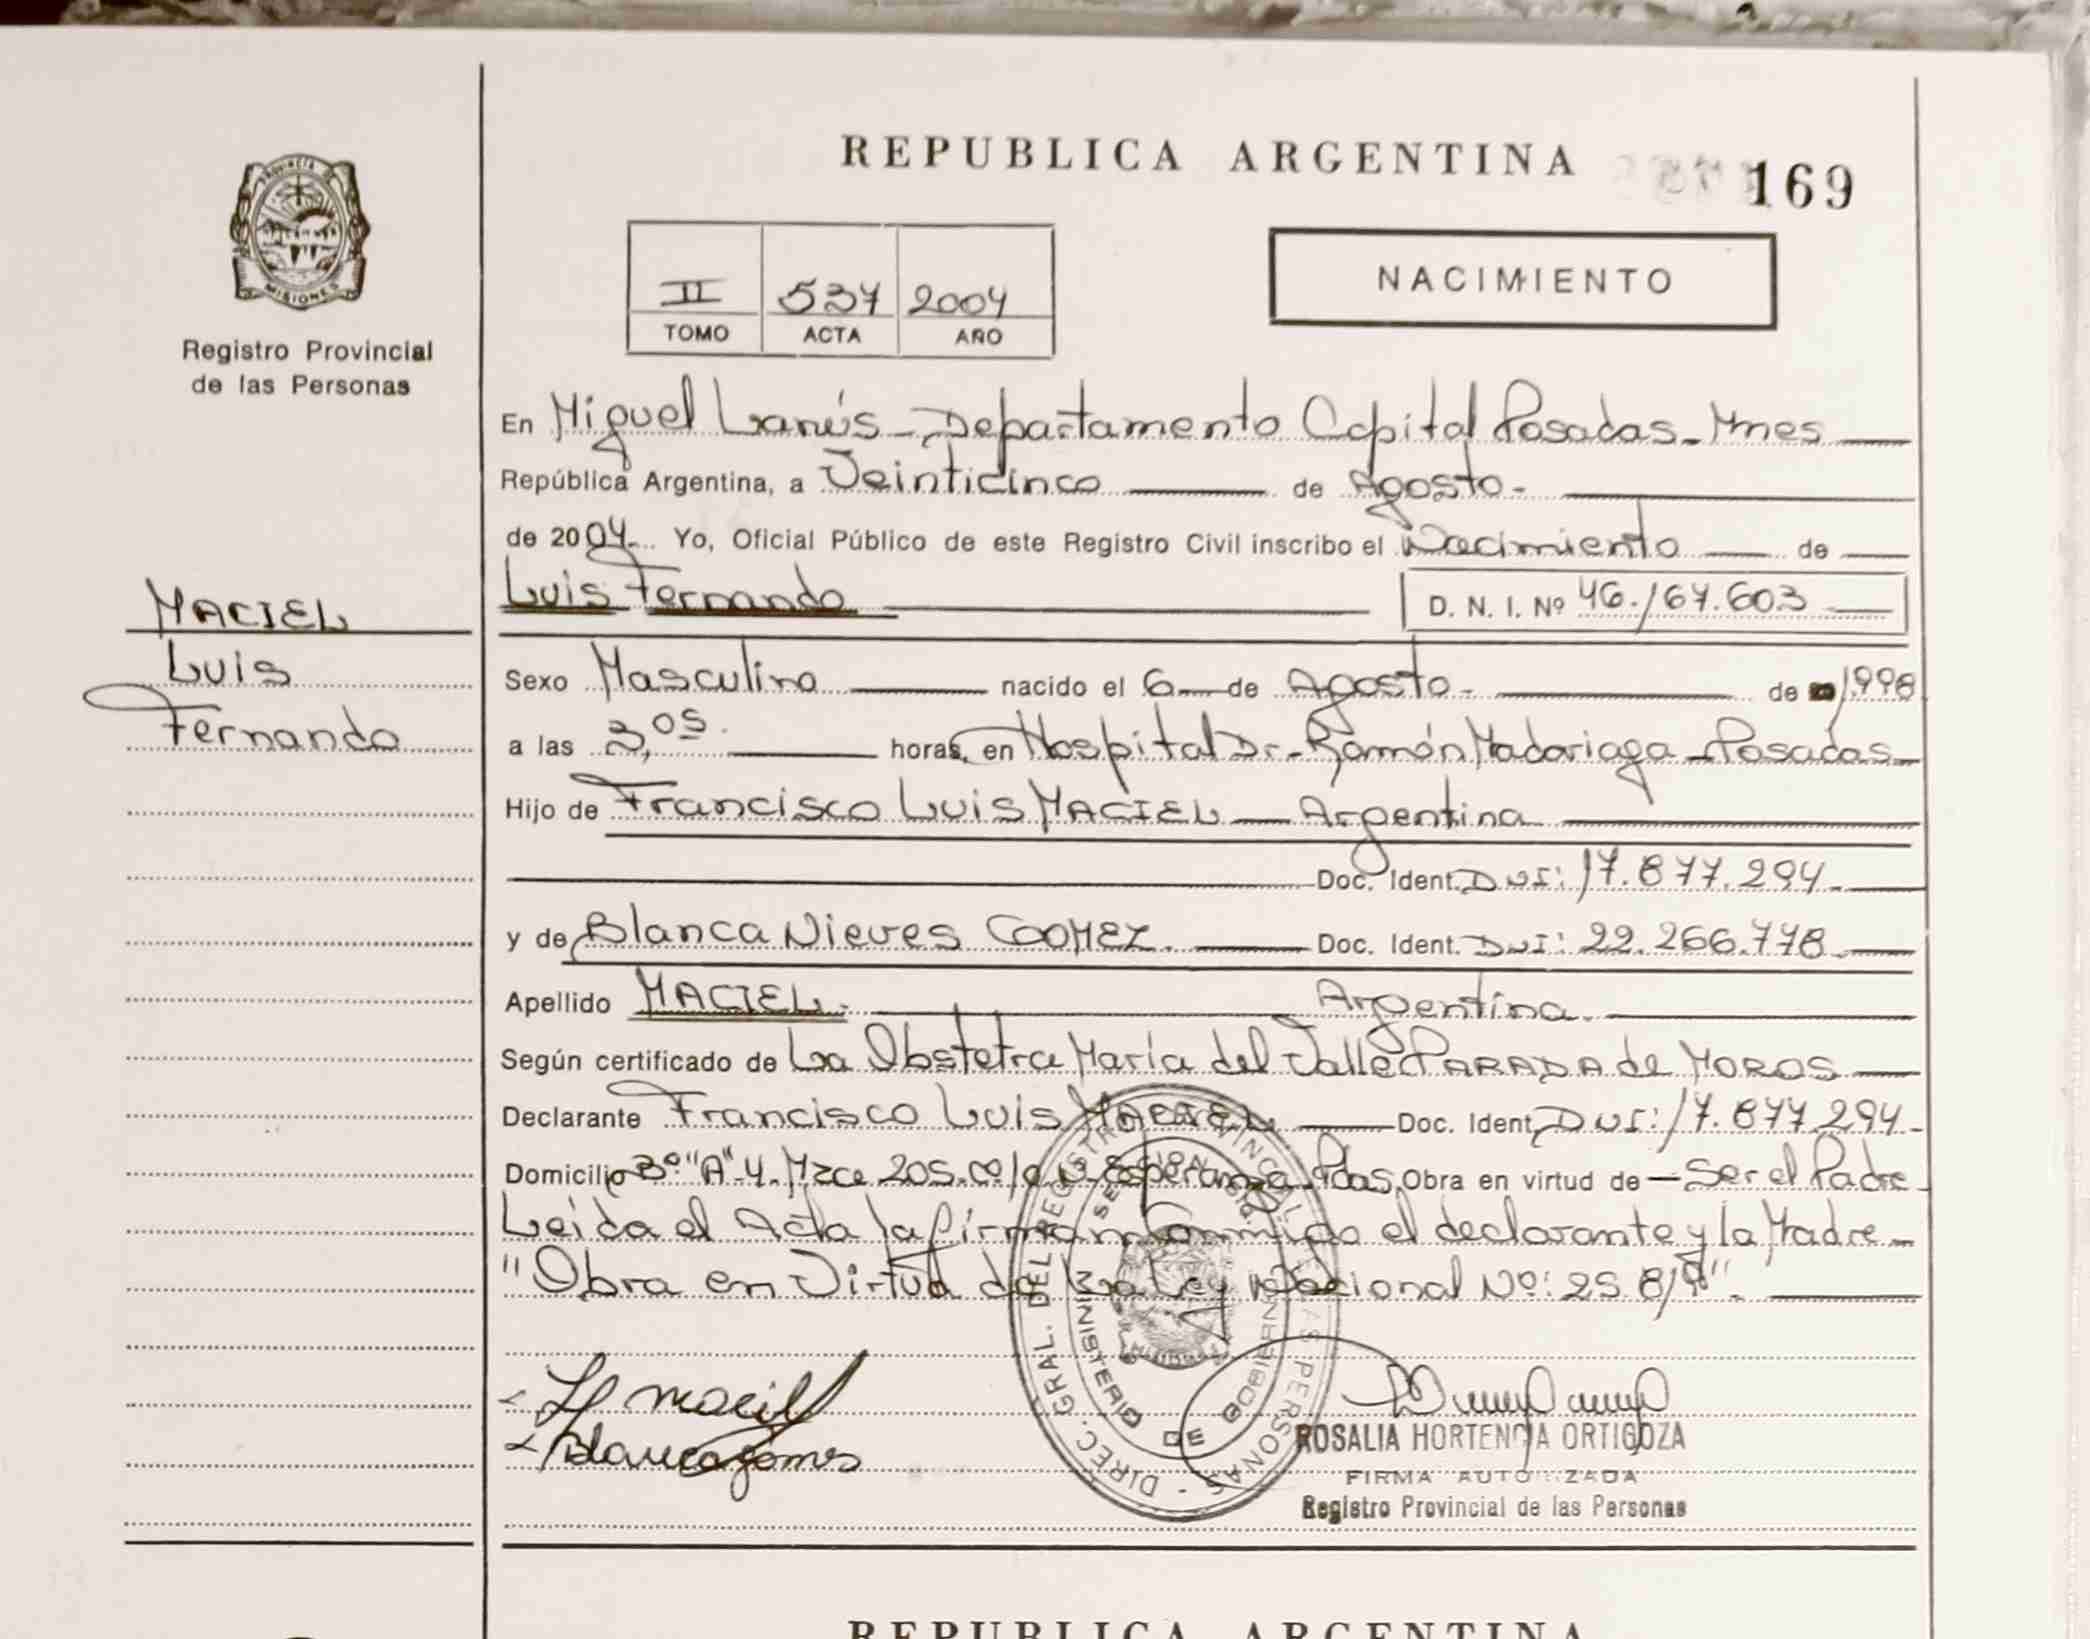 REPUBLICA ARGENTINA
169
PROVINCIA DE
MISIONES
Registro Provincial
de las Personas
II 537 2004
TOMO ACTA AÑO
NACIMIENTO
En Miguel Lanús - Departamento Capital Posadas - Mnes
República Argentina, a Veinticinco de Agosto -
de 2004. Yo, Oficial Público de este Registro Civil inscribo el Nacimiento de
Luis Fernando D. N. I. Nº 46.167.603
MACIEL
Luis
Fernando
Sexo Masculino nacido el 6 de Agosto - de 1998
a las 3,05 horas, en Hospital Dr. Ramón Madariaga - Posadas
Hijo de Francisco Luis MACIEL - Argentina
Doc. Ident. DNI: 17.877.294
y de Blanca Nieves GOMEZ. Doc. Ident. DNI: 22.266.778
Apellido MACIEL. Argentina.
Según certificado de La Obstetra María del Valle PARADA de MOROS
Declarante Francisco Luis MACIEL Doc. Ident. DNI: 17.877.294
Domicilio Bº "A" 4. Mzce 205. Esperanza Pdas. Obra en virtud de - Ser el Padre
Leída el Acta la firman conmigo el declarante y la Madre -
"Obra en Virtud de La Ley Nacional Nº: 25.819".
DIREC. GRAL. DEL REGISTRO PROVINCIAL DE LAS PERSONAS
MINISTERIO DE GOBIERNO
Blanca gomes
ROSALIA HORTENCIA ORTIGOZA
FIRMA AUTORIZADA
Registro Provincial de las Personas
REPUBLICA ARGENTINA